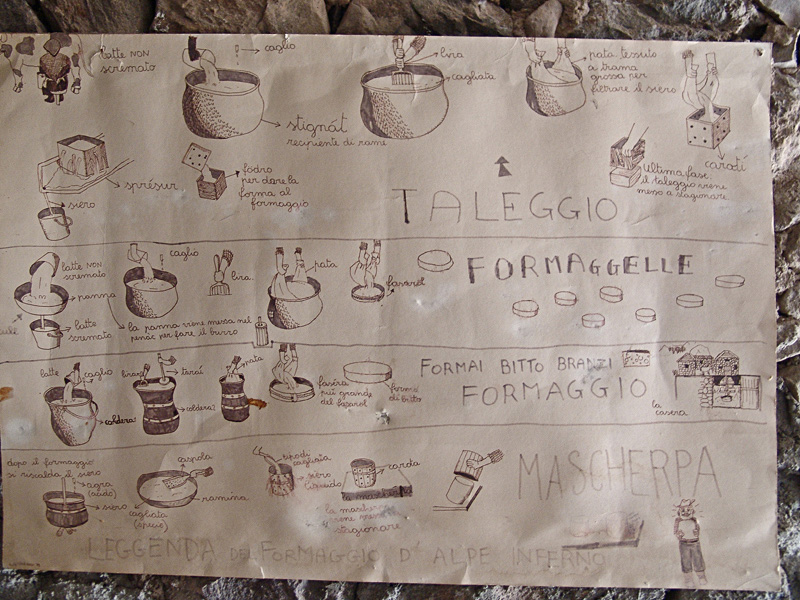 latte NON
scremato
caglio
lira
cagliata
pata tessuto
a trama
grossa per
filtrare il siero
stignát
recipiente di rame
carotí
spréšur
siero
fodro
per dare la
forma al
formaggio
Ultima fase:
il taleggio viene
messo a stagionare
TALEGGIO
latte NON
scremato
panna
latte
scremato
caglio
lira.
la panna viene messa nel
penác per fare il burro
pata
fasaröl
FORMAGGELLE
latte
caglio
coldera
coldera?
pata
fasera
più grande
del fasaröl
forma
di bitto
FORMAI BITTO BRANZI
FORMAGGIO
la
casera
dopo il formaggio
si riscalda il siero
agra
(acido)
siero
caspola
ramina
cagliata
tipo di
cagliata
siero
liquido
carota
la
viene
stagionare
MASCHERPA
LEGGENDA DEL FORMAGGIO D'ALPE INFERNO